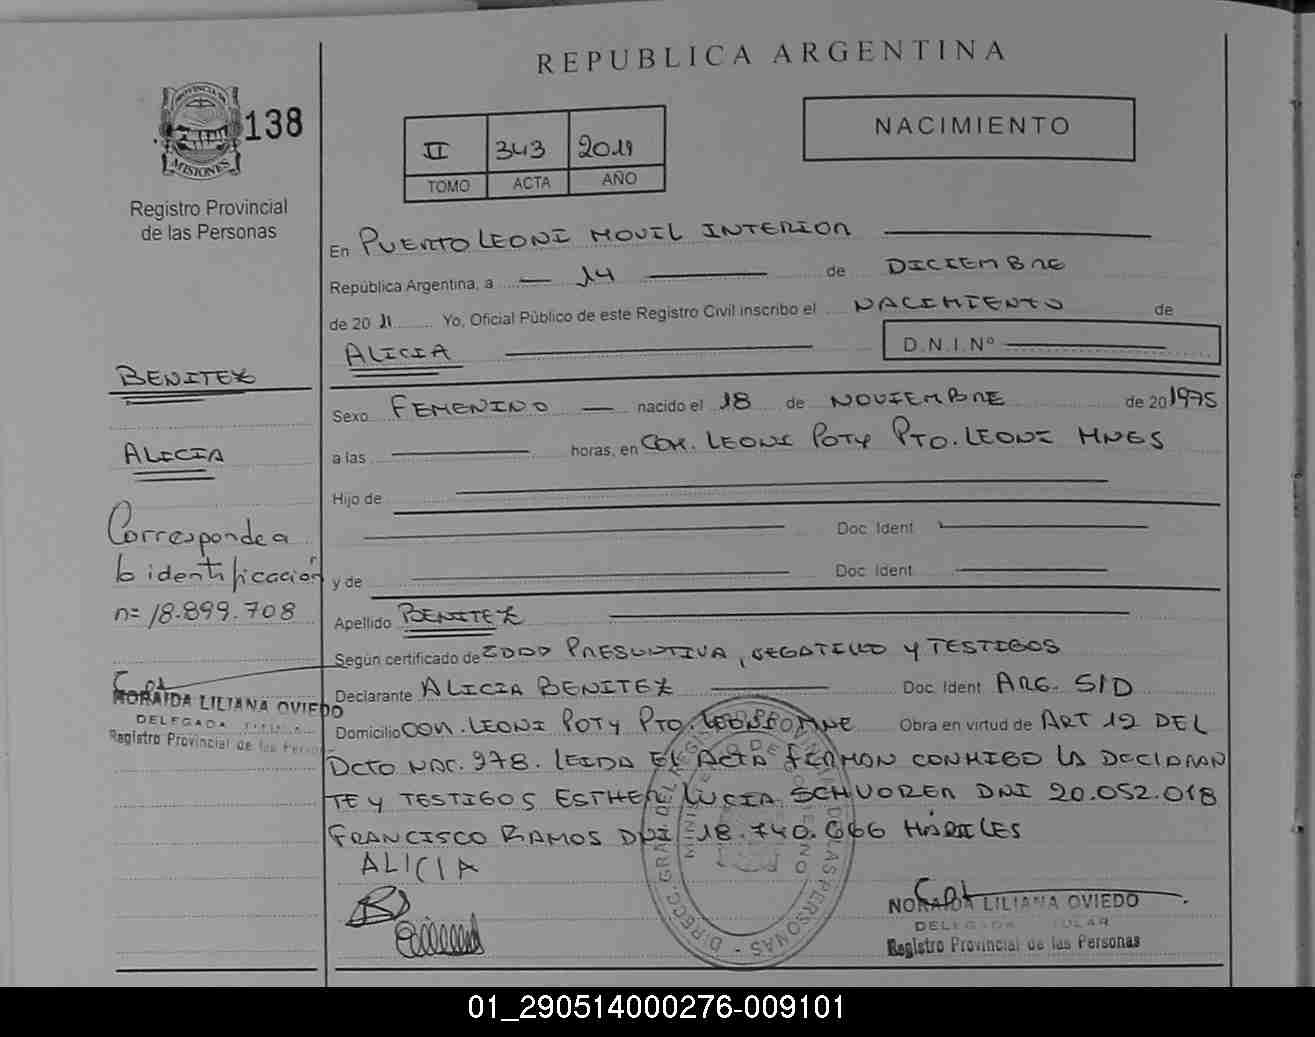 REPUBLICA ARGENTINA
PROVINCIA DE
MISIONES
138
Registro Provincial
de las Personas
II 343 2011
TOMO ACTA AÑO
NACIMIENTO
En PUERTO LEONI MOVIL INTERIOR
República Argentina, a 14 de DICIEMBRE
de 20 11 Yo, Oficial Público de este Registro Civil inscribo el NACIMIENTO de
ALICIA D.N.I.Nº
Sexo FEMENINO nacido el 18 de NOVIEMBRE de 20 1975
a las horas, en COM. LEONI POTY PTO. LEONI MNES
Hijo de
Doc. Ident.
y de Doc. Ident.
Apellido BENITEZ
Según certificado de EDAD PRESUNTIVA, NEGATIVO Y TESTIGOS
Declarante ALICIA BENITEZ Doc. Ident. ARG. S/D
Domicilio COM. LEONI POTY PTO. LEONI MNE Obra en virtud de ART 12 DEL
DCTO NAC. 978. LEIDA EL ACTA FIRMAN CONMIGO LA DECLARAN
TE Y TESTIGOS ESTHER LUCIA SCHVORER DNI 20.052.018
FRANCISCO RAMOS DNI 18.740.666 HÁBILES
ALICIA
NORAIDA LILIANA OVIEDO
DELEGADA TITULAR
Registro Provincial de las Personas
BENITEZ
ALICIA
Corresponde a
la identificación
nº 18.899.708
NORAIDA LILIANA OVIEDO
DELEGADA TITULAR
Registro Provincial de las Person
01_290514000276-009101